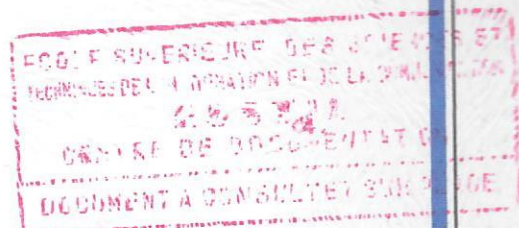 ECOLE SUPERIEURE DES SCIENCES ET
TECHNIQUES DE L'INFORMATION ET DE LA COMMUNICATION
CENTRE DE DOCUMENTATION
DOCUMENT A CONSULTER SUR PLACE